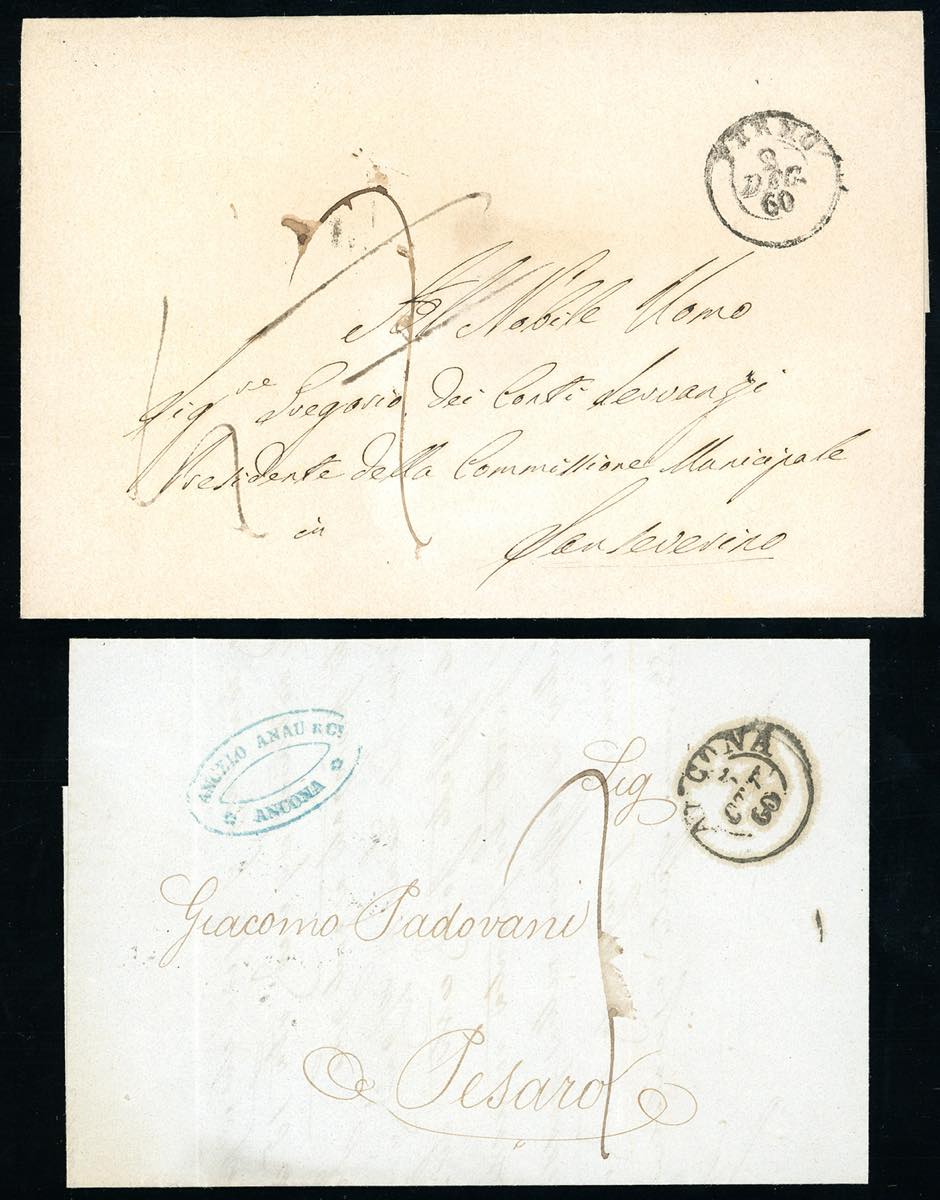 FERMO
2
DIC.
60
All Nobile Uomo
Sigre Gregorio dei Conti Servanzi
Presidente della Commissione Municipale
in
Sanseverino
ANGELO ANAU E CI
ANCONA
Sig
ANCONA
60
Giacomo Padovani
Pesaro